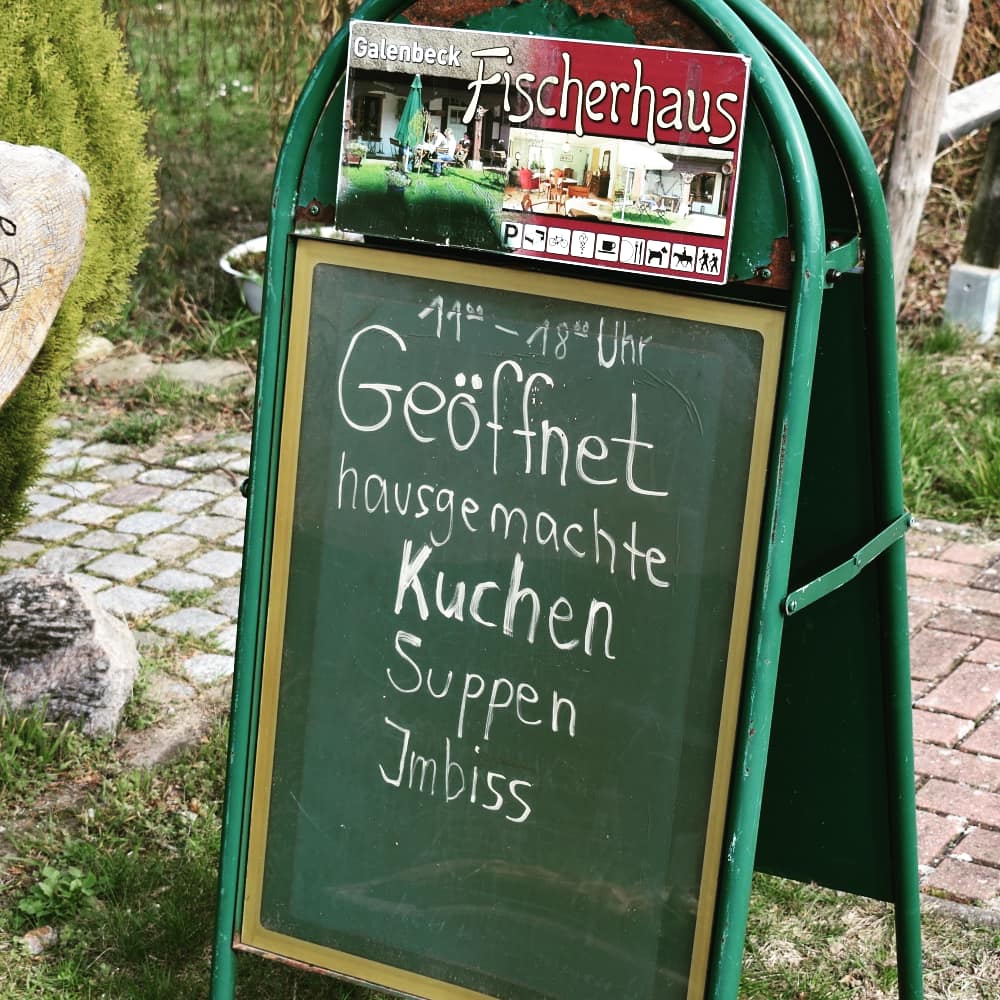 Galenbeck
Fischerhaus
P
11⁰⁰ - 18⁰⁰ Uhr
Geöffnet
hausgemachte
Kuchen
Suppen
Imbiss